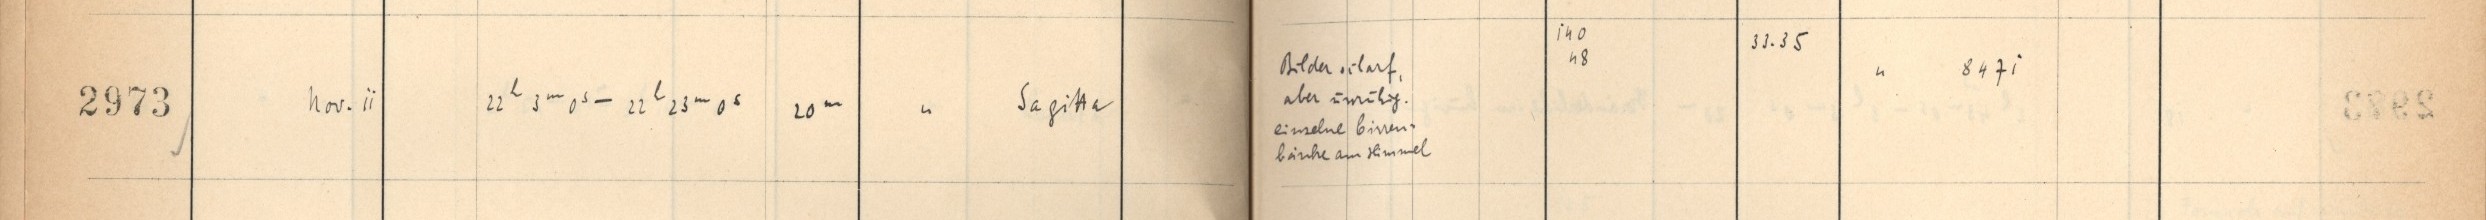 2973 Nov. 11 22h 3m 0s – 22h 23m 0s 20m " Sagitta
Bilder scharf,
aber unruhig.
einzelne Cirren-
bänke am Himmel
140
48
33.35
" 8471